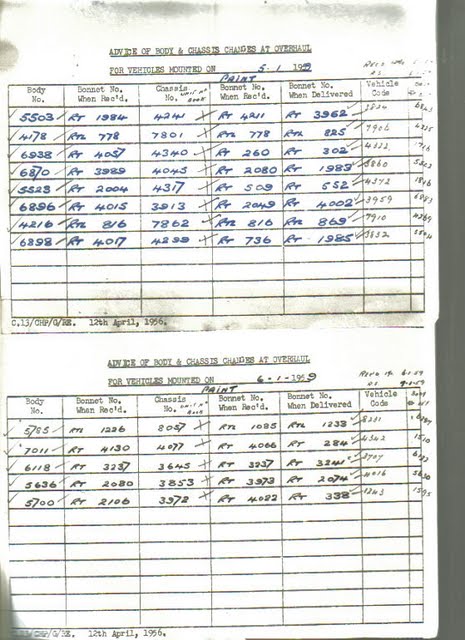 ADVICE OF BODY & CHASSIS CHANGES AT OVERHAUL
FOR VEHICLES MOUNTED ON 5-1 1959
PAINT
Body No. Bonnet No. When Rec'd. Chassis No. Bonnet No. When Rec'd. Bonnet No. When Delivered Vehicle Code
5503 RT 1984 4241 RT 4211 RT 3962
4178 RTL 778 7801 RTL 778 RTL 825 7906
6938 RT 4057 4340 RT 260 RT 302 4332
6870 RT 3989 4045 RT 2080 RT 1983 3860
5523 RT 2004 4317 RT 509 RT 552 4372
6896 RT 4015 3913 RT 2049 RT 4002 3959
4216 RTL 816 7862 RTL 816 RTL 869 7910
6898 RT 4017 4299 RT 736 RT 1985 3832
C.13/CHP/G/RE. 12th April, 1956.
ADVICE OF BODY & CHASSIS CHANGES AT OVERHAUL
FOR VEHICLES MOUNTED ON 6-1-1959
PAINT
Body No. Bonnet No. When Rec'd. Chassis No. Bonnet No. When Rec'd. Bonnet No. When Delivered Vehicle Code
5785 RTL 1226 8057 RTL 1085 RTL 1233 8231
7011 RT 4130 4077 RT 4066 RT 284 4342
6118 RT 3237 3645 RT 3237 RT 3241 3707
5636 RT 2080 3853 RT 3973 RT 2074 4016
5700 RT 2106 3972 RT 4022 RT 338
C.13/CHP/G/RE. 12th April, 1956.